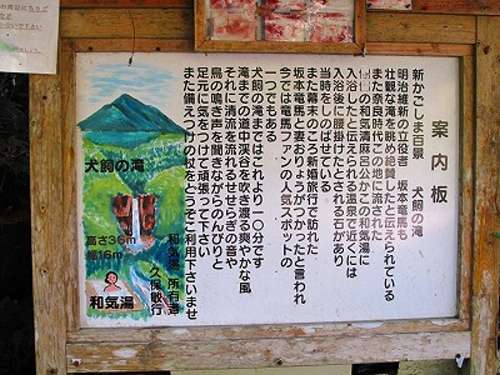 案内板
新かごしま百景　犬飼の滝
明治維新の立役者　坂本竜馬も
壮観な滝を眺め絶賛したと伝えられている
また奈良時代この地に流された
の和気清麻呂公がこの和気湯に
入浴したと伝えられる温泉で近くには
入浴後に腰掛けたとされる石があり
当時をしのばせている
また幕末のころ新婚旅行で訪れた
坂本竜馬と妻おりょうがつかったと言われ
今では竜馬ファンの人気スポットの
一つでもある
犬飼の滝まではこれより一〇分です
滝までの道中渓谷を吹き渡る爽やかな風
それに清流を流れるせせらぎの音や
鳥の鳴き声を聞きながらのんびりと
足元に気をつけて頑張って下さい
また備えつけの杖をどうぞご利用下さいませ
和気湯　所有者
久保敏行
犬飼の滝
高さ36m
幅16m
和気湯